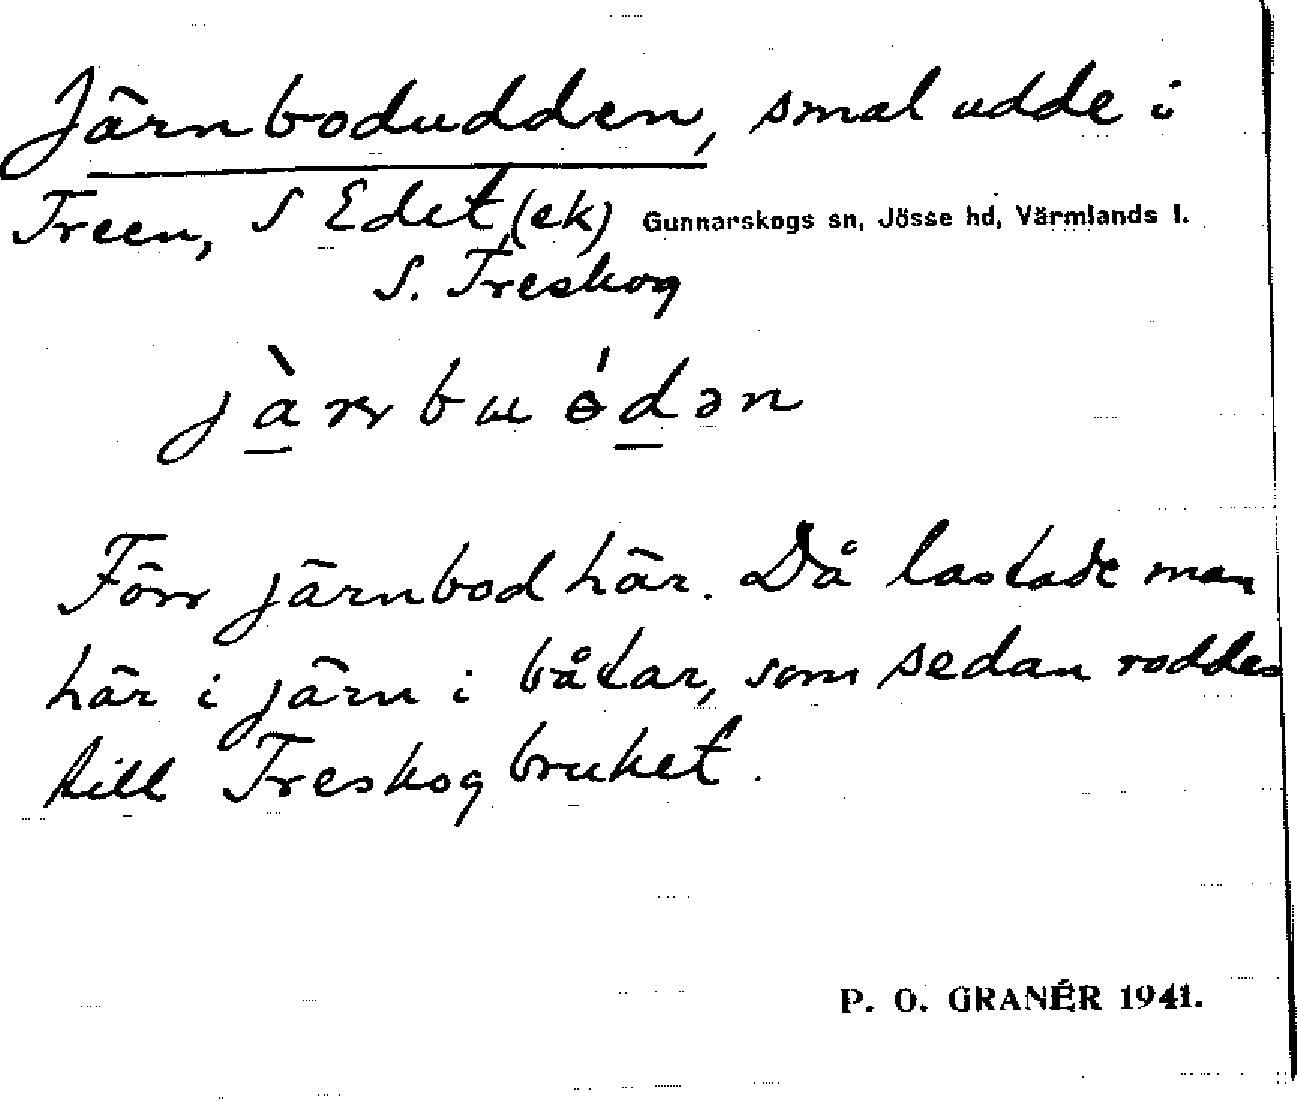 Järnbodudden, smal udde i
Treen, S Edet (ek) Gunnarskogs sn, Jösse hd, Värmlands l.
S. Treskog
Förr järnbod här. Då lastade man
här i järn i båtar, som sedan roddes
till Treskog bruket.
P. O. GRANÉR 1941.